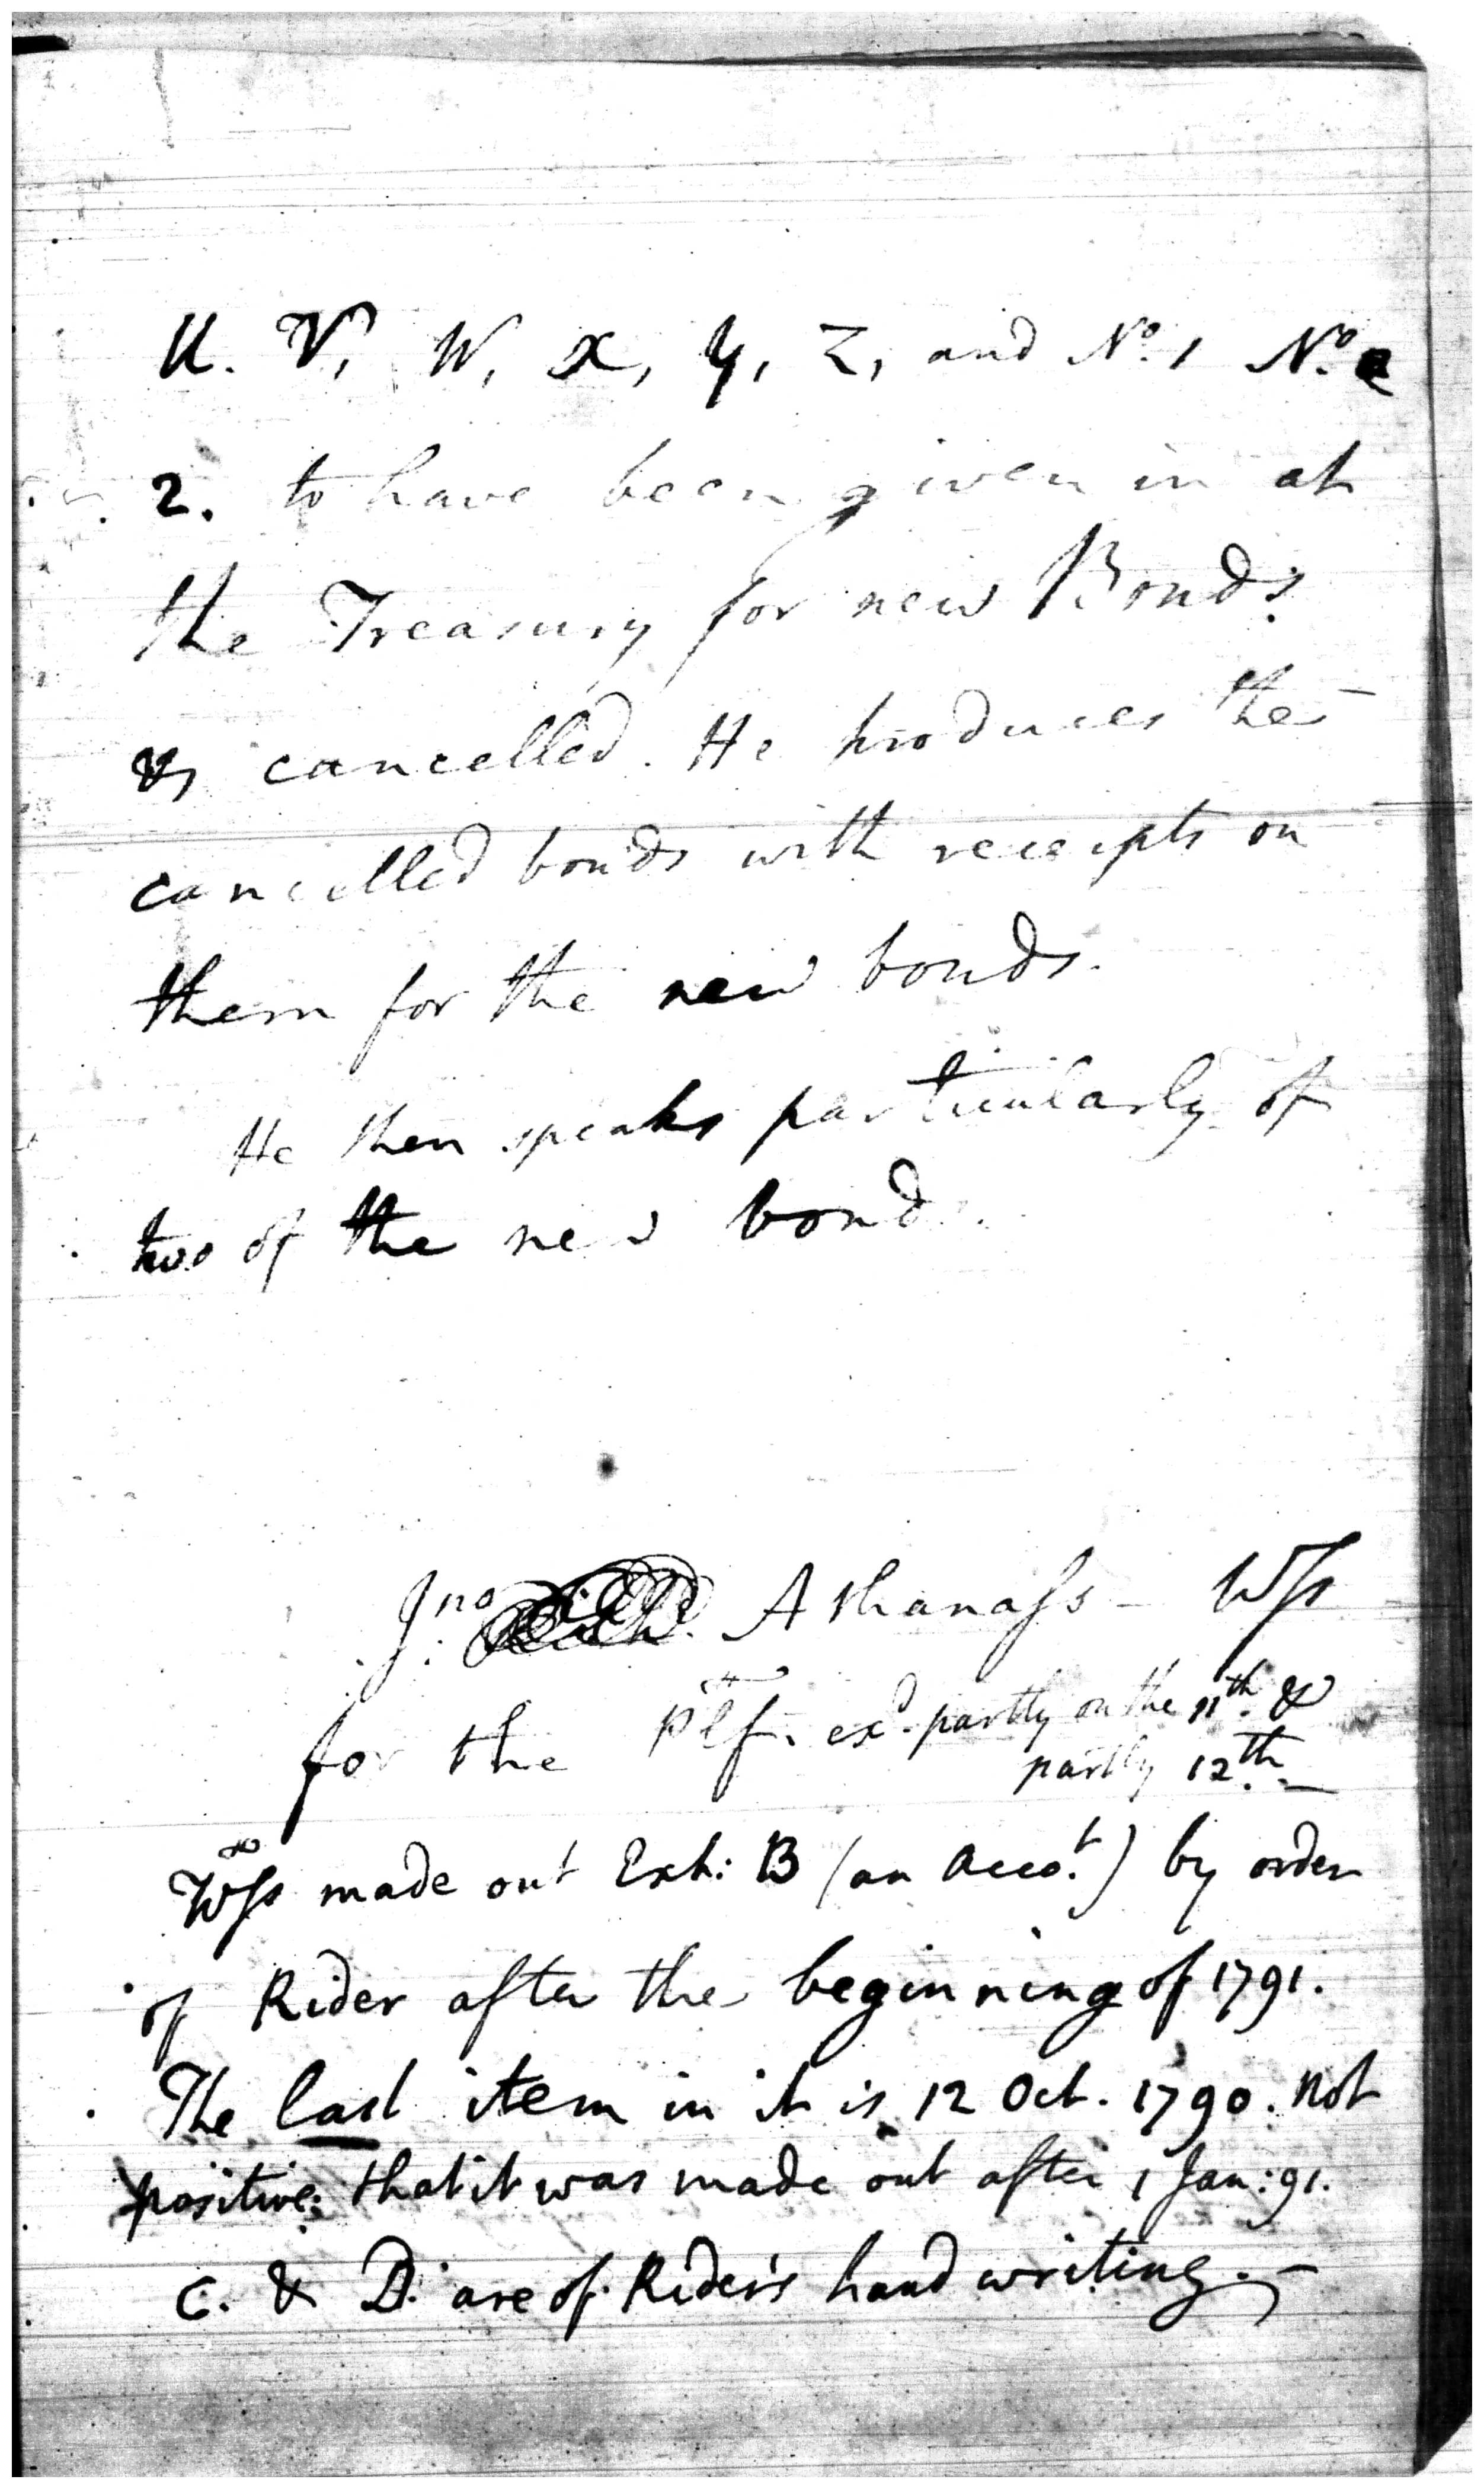 U. V, W, X, Y, Z, and No. 1 No.
2. to have been given in at
the Treasury for new Bonds
& cancelled. He produces the
cancelled bonds with receipts on
them for the new bonds.
He then speaks particularly of
two of the new bonds.
Jno. Athanass - Wss
for the Plf. exd. partly on the 11th. &
partly 12th. -
Wss made out Exh: B (an Acco.t) by order
of Rider after the beginning of 1791.
The last item in it is 12 Oct. 1790. not
positive that it was made out after 1 Jan: 91.
C. & D. are of Rider's hand writing. -